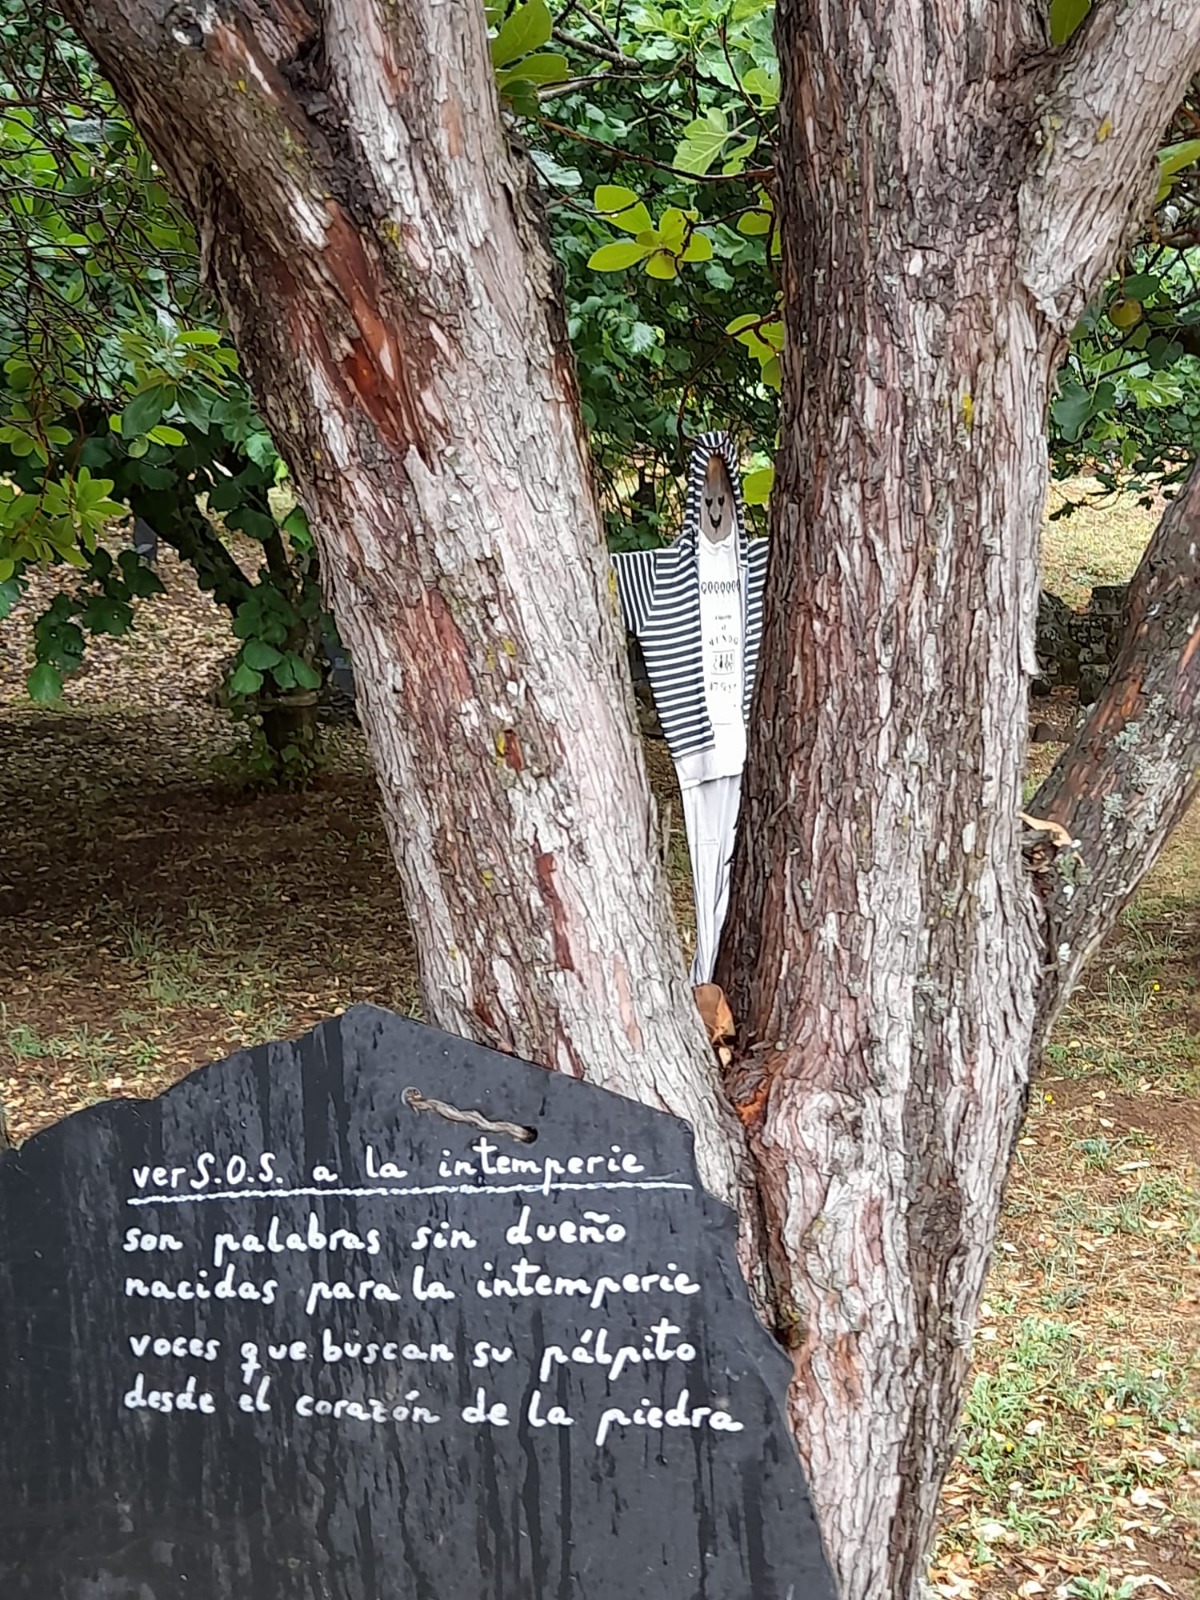 MUNDO
verS.O.S. a la intemperie
son palabras sin dueño
nacidas para la intemperie
voces que buscan su pálpito
desde el corazón de la piedra